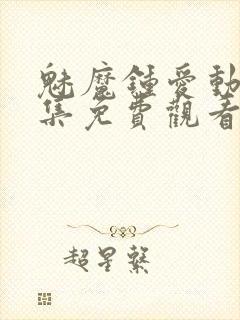 魅魔鍾愛動
集免費觀看
超星繫